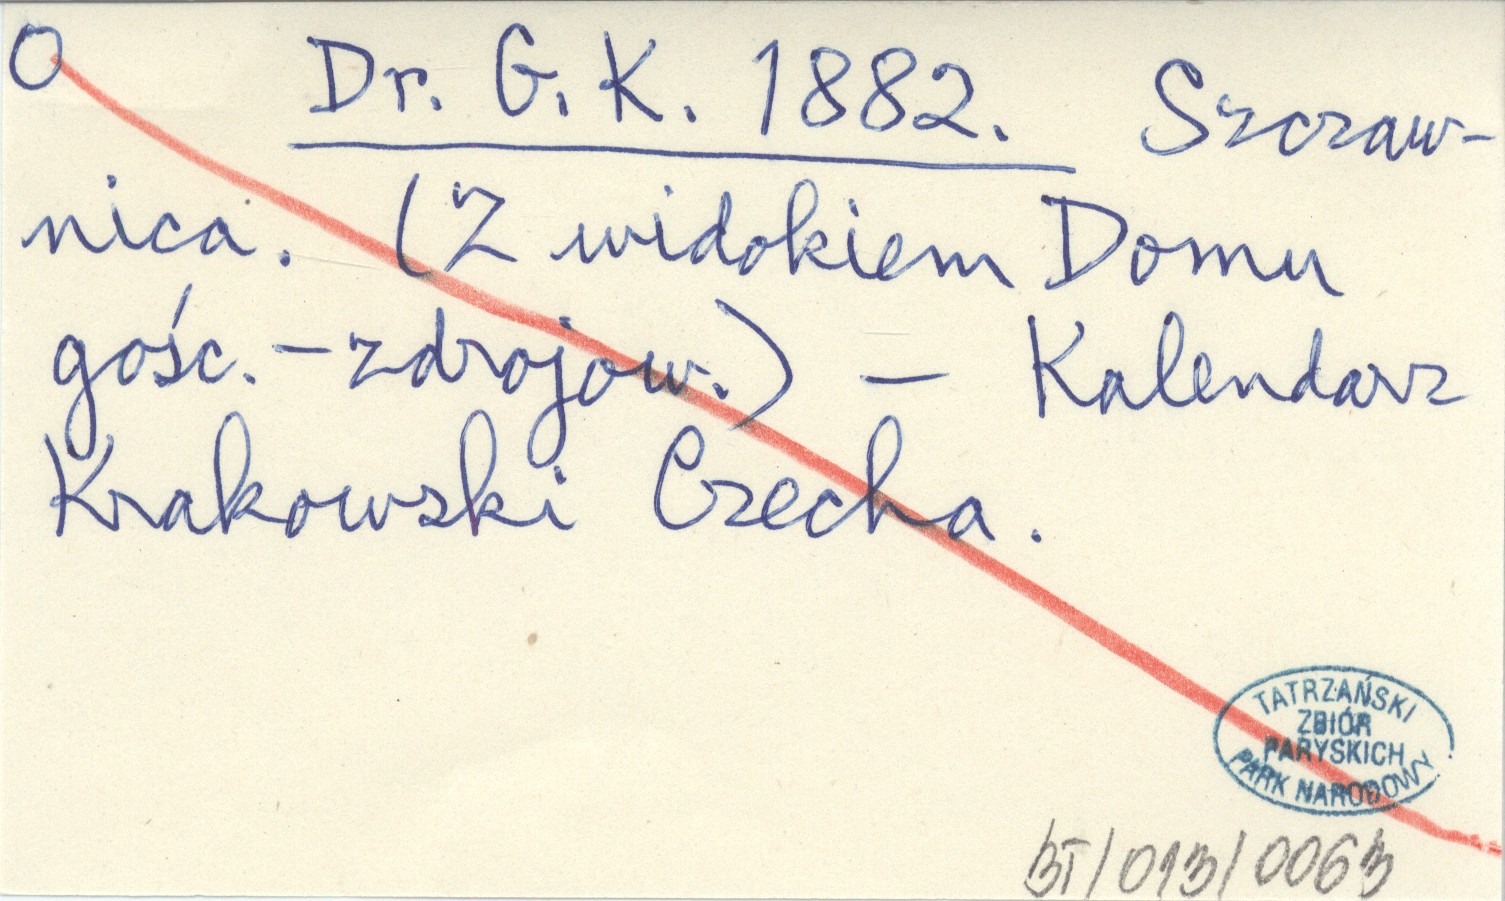 O Dr. G. K. 1882. Szczaw-
nica. (Z widokiem Domu
gośc. - zdrojow.) — Kalendarz
Krakowski Czecha.
TATRZAŃSKI
ZBIÓR
PARYSKICH
PARK NARODOWY
BT/013/0063